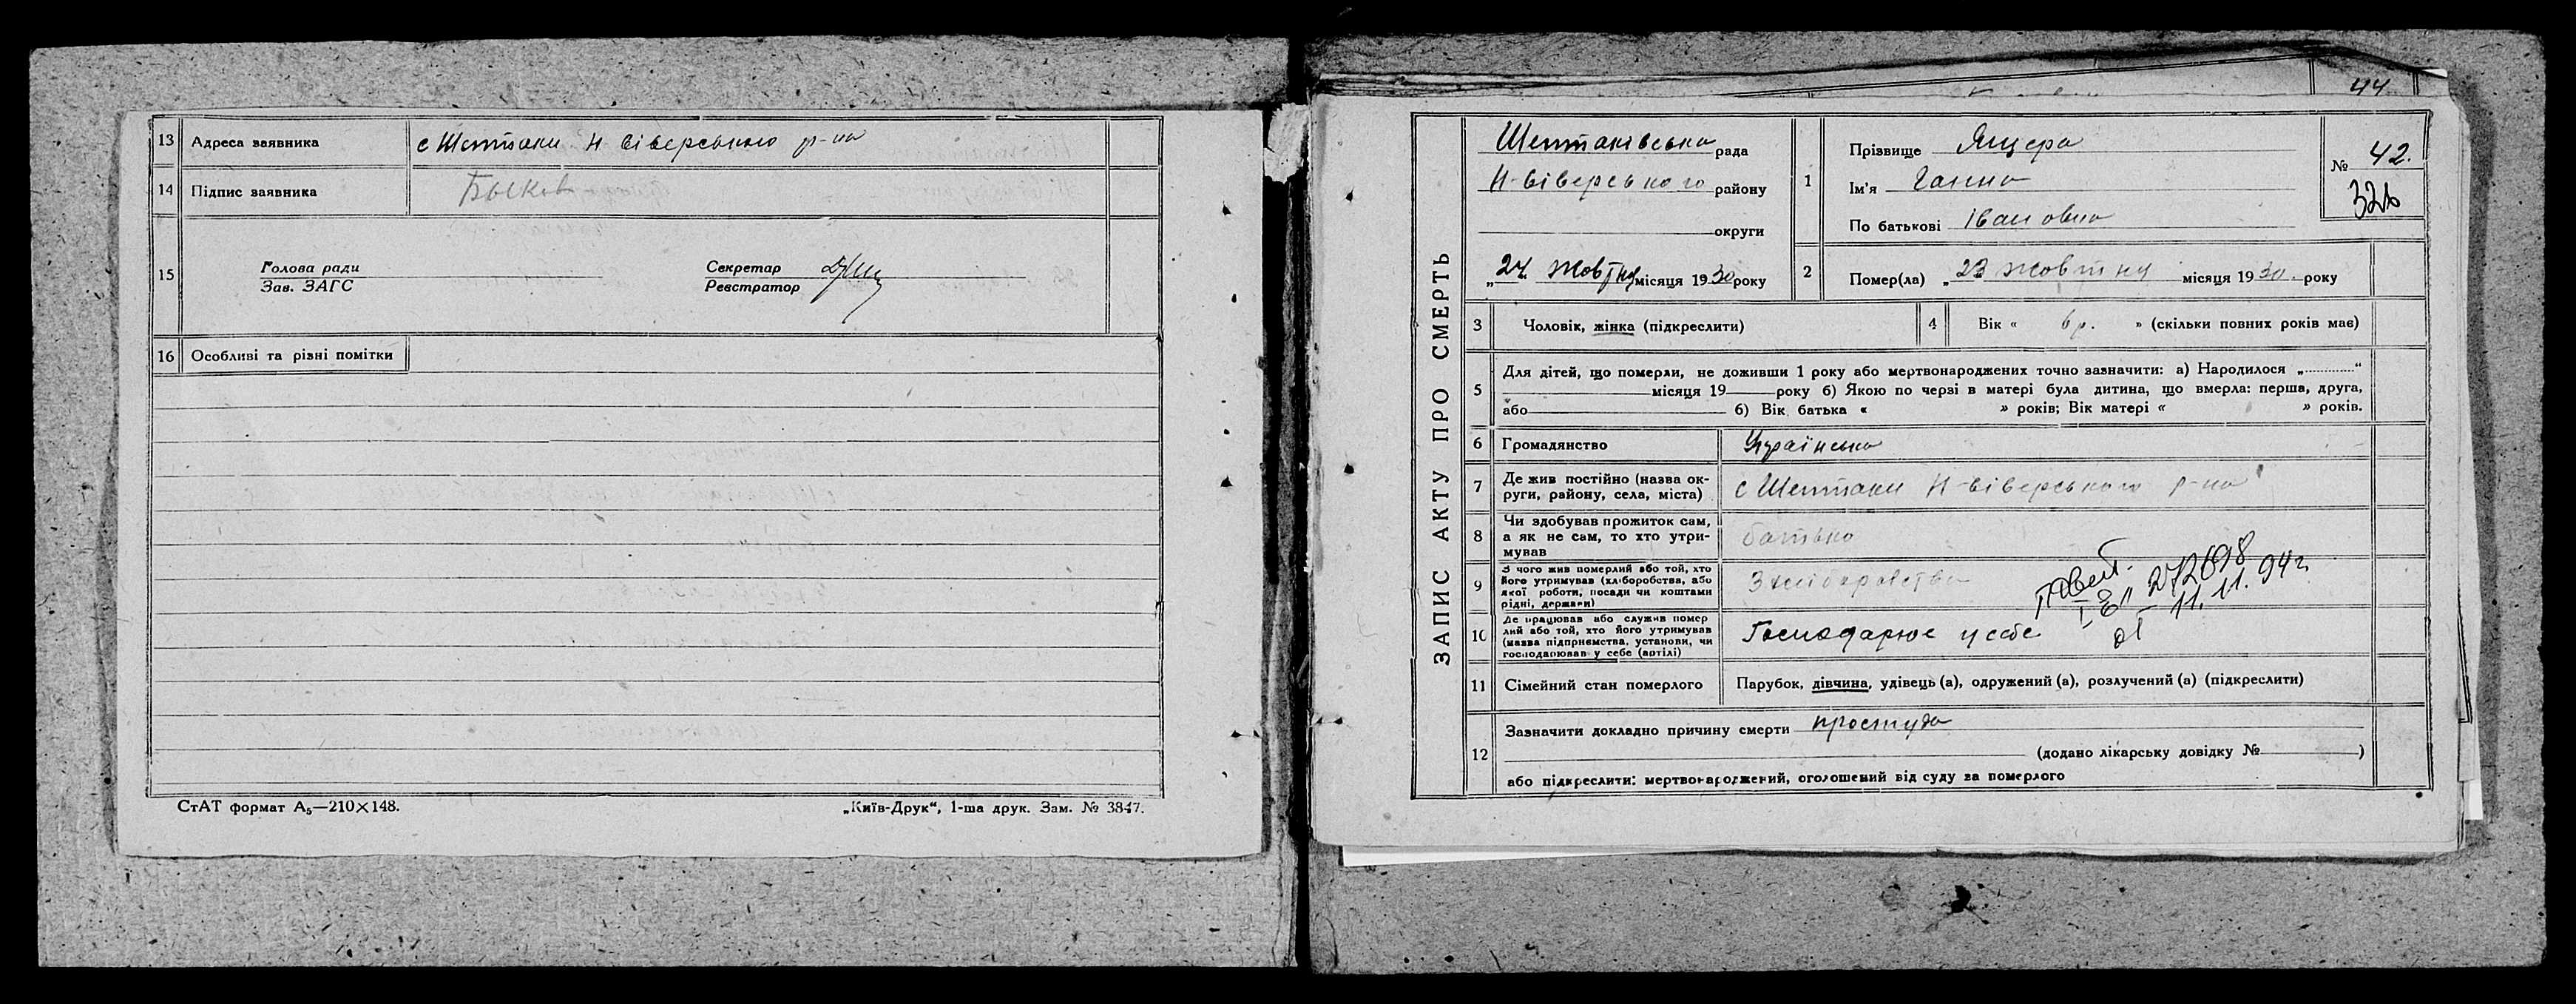 13 Адреса заявника с Шептаки Н Сіверського р-на
14 Підпис заявника Быков
15 Голова ради
Зав. ЗАГС
Секретар
Реєстратор
16 Особливі та різні помітки
СтАТ формат А₅—210×148.
„Київ-Друк“, 1-ша друк. Зам. № 3847.
44
ЗАПИС АКТУ ПРО СМЕРТЬ
Шептаківська рада
Н-Сіверського району
округи
„24 жовтня місяця 1930 року
1 Прізвище Ящера
Ім'я Ганна
По батькові Івановна
№ 42.
32б
2 Помер(ла) „23 жовтня місяця 1930. року
3 Чоловік, жінка (підкреслити)
4 Вік « 6 р. » (скільки повних років має)
5 Для дітей, що померли, не доживши 1 року або мертвонароджених точно зазначити: а) Народилося „............“
місяця 19 року б) Якою по черзі в матері була дитина, що вмерла: перша, друга,
або б) Вік батька « » років; Вік матері « » років.
6 Громадянство Українська
7 Де жив постійно (назва округи, району, села, міста) с Шептаки Н-Сіверського р-на
8 Чи здобував прожиток сам,
а як не сам, то хто утримував батько
9 З чого жив померлий або той, хто
його утримував (хліборобства, або
якої роботи, посади чи коштами
рідні, держави) З хліборобства
10 Де працював або служив померлий або той, хто його утримував
(назва підприємства, установи, чи
господарював у себе (артілі) Господарює у себе
272698
11.11.94г.
11 Сімейний стан померлого Парубок, дівчина, удівець (а), одружений (а), розлучений (а) (підкреслити)
12 Зазначити докладно причину смерти простуда
(додано лікарську довідку № )
або підкреслити: мертвонароджений, оголошений від суду за померлого